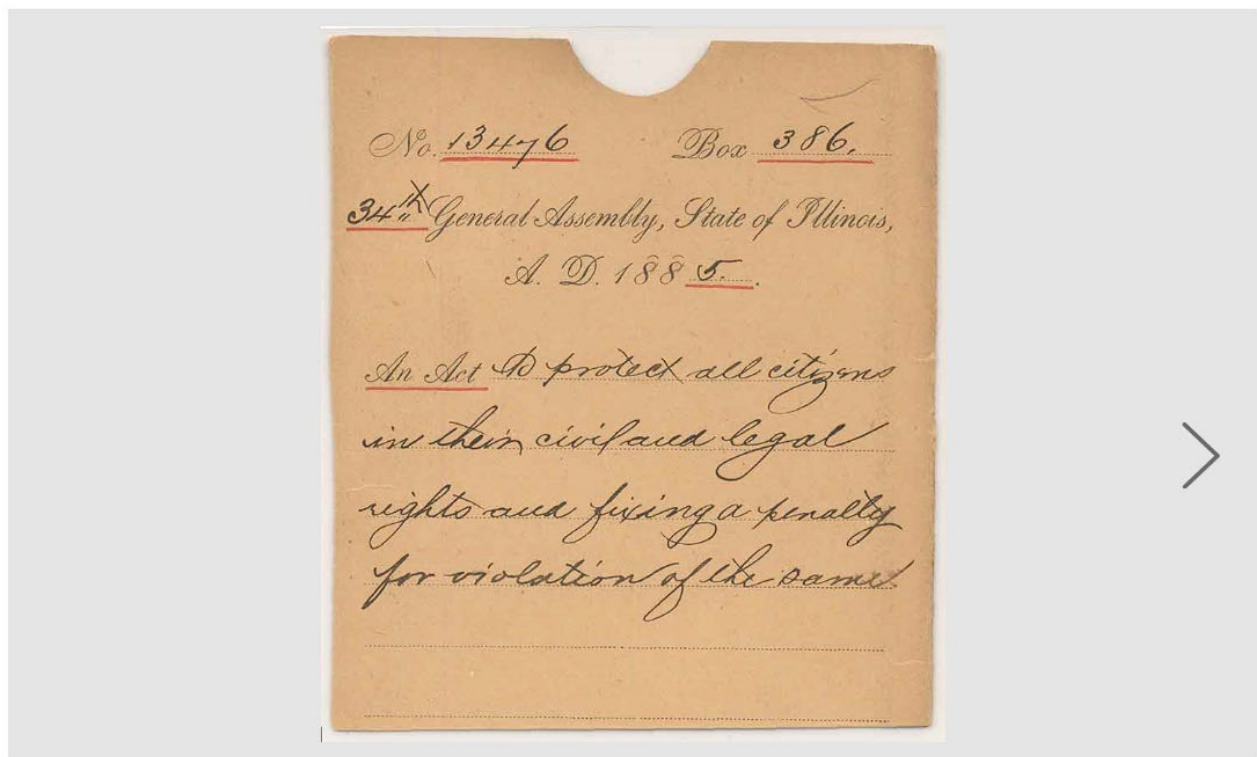 No. 13476 Box 386.
34th General Assembly, State of Illinois,
A. D. 1885.
An Act to protect all citizens
in their civil and legal
rights and fixing a penalty
for violation of the same.